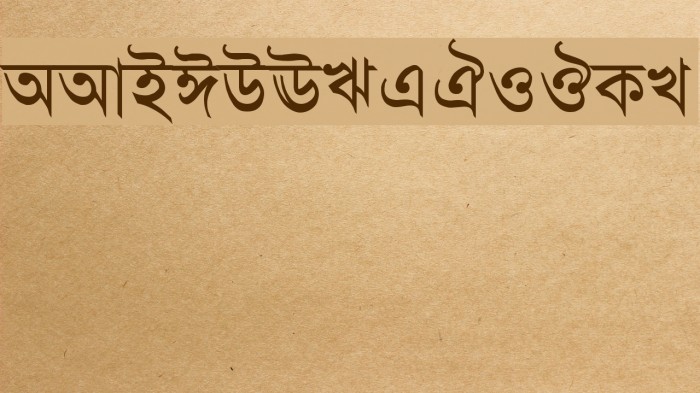 অআইঈউঊঋএঐওঔকখ